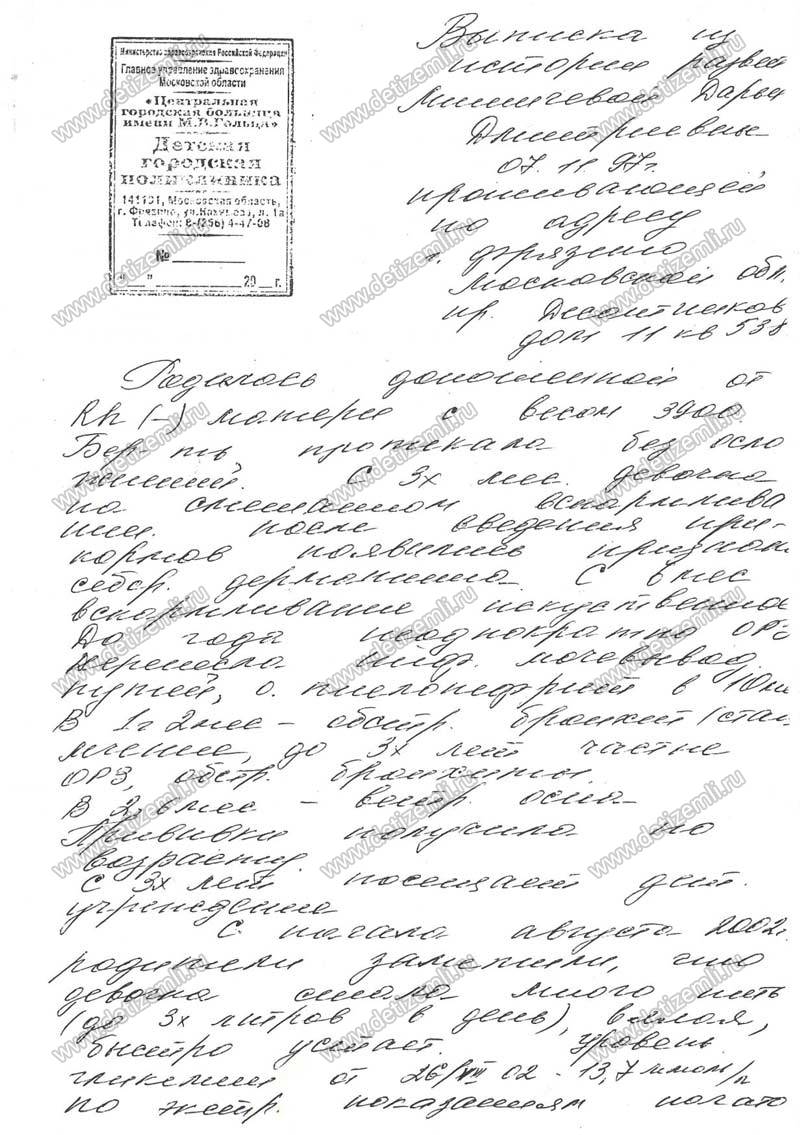 Министерство здравоохранения Российской Федерации
Главное управление здравоохранения
Московской области
«Центральная
городская больница
имени М.В.Гольца»
Детская
городская
поликлиника
141191, Московская область,
г. Фрязино, ул.
Телефон: 8-(256) 4-47-08
№
" " 20 г.
Выписка из
истории развит
Дарьи
Дмитриевны
07.11.97г.
проживающей
по адресу
г. Фрязино
Московской обл.
пр. Десантников
дом 11 кв 538
Родилась доношенной от
Rh (-) матери с весом 3900.
Бер-ть протекала без осло
жнений. С 3х мес. девочка
на смешанном вскармлива
нии. После введения при-
кормов появились признак
себор. дерматита. С 6 мес
вскармливание искуственное
До года неоднократно ОРЗ
перенесла инф. мочевывод.
путей, о. пиелонефрит в 10 ме
В 1г 2 мес - обстр. бронхит (стац
лечение, до 3х лет частые
ОРЗ, обстр. бронхиты.
В мес - ветр. оспа
Прививки получила по
возрасту.
С 3х лет посещает дет.
учреждение
С начала августа 2002г
родители заметили, что
девочка стала много пить
(до 3х литров в день), вялая,
быстро устает. Уровень
гликемии от 26/VIII 02 - 13,7 ммол/л
по экстр. показаниям
www.detizemli.ru